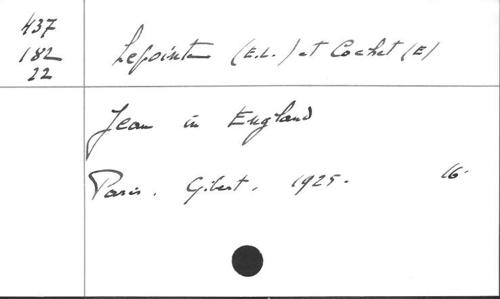 437
182
22
Lepointe (E.L.) et Cochet (E)
Jean in England
Paris. Gibert. 1925. 16.